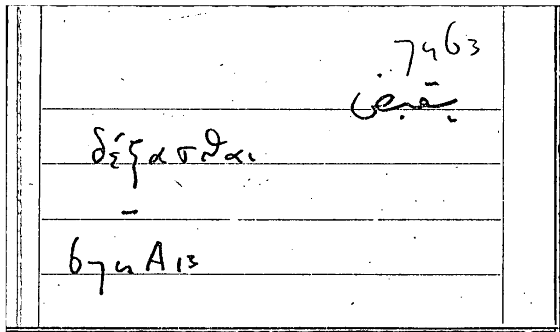 74b3
يقبض
δέξασθαι
–
674A13